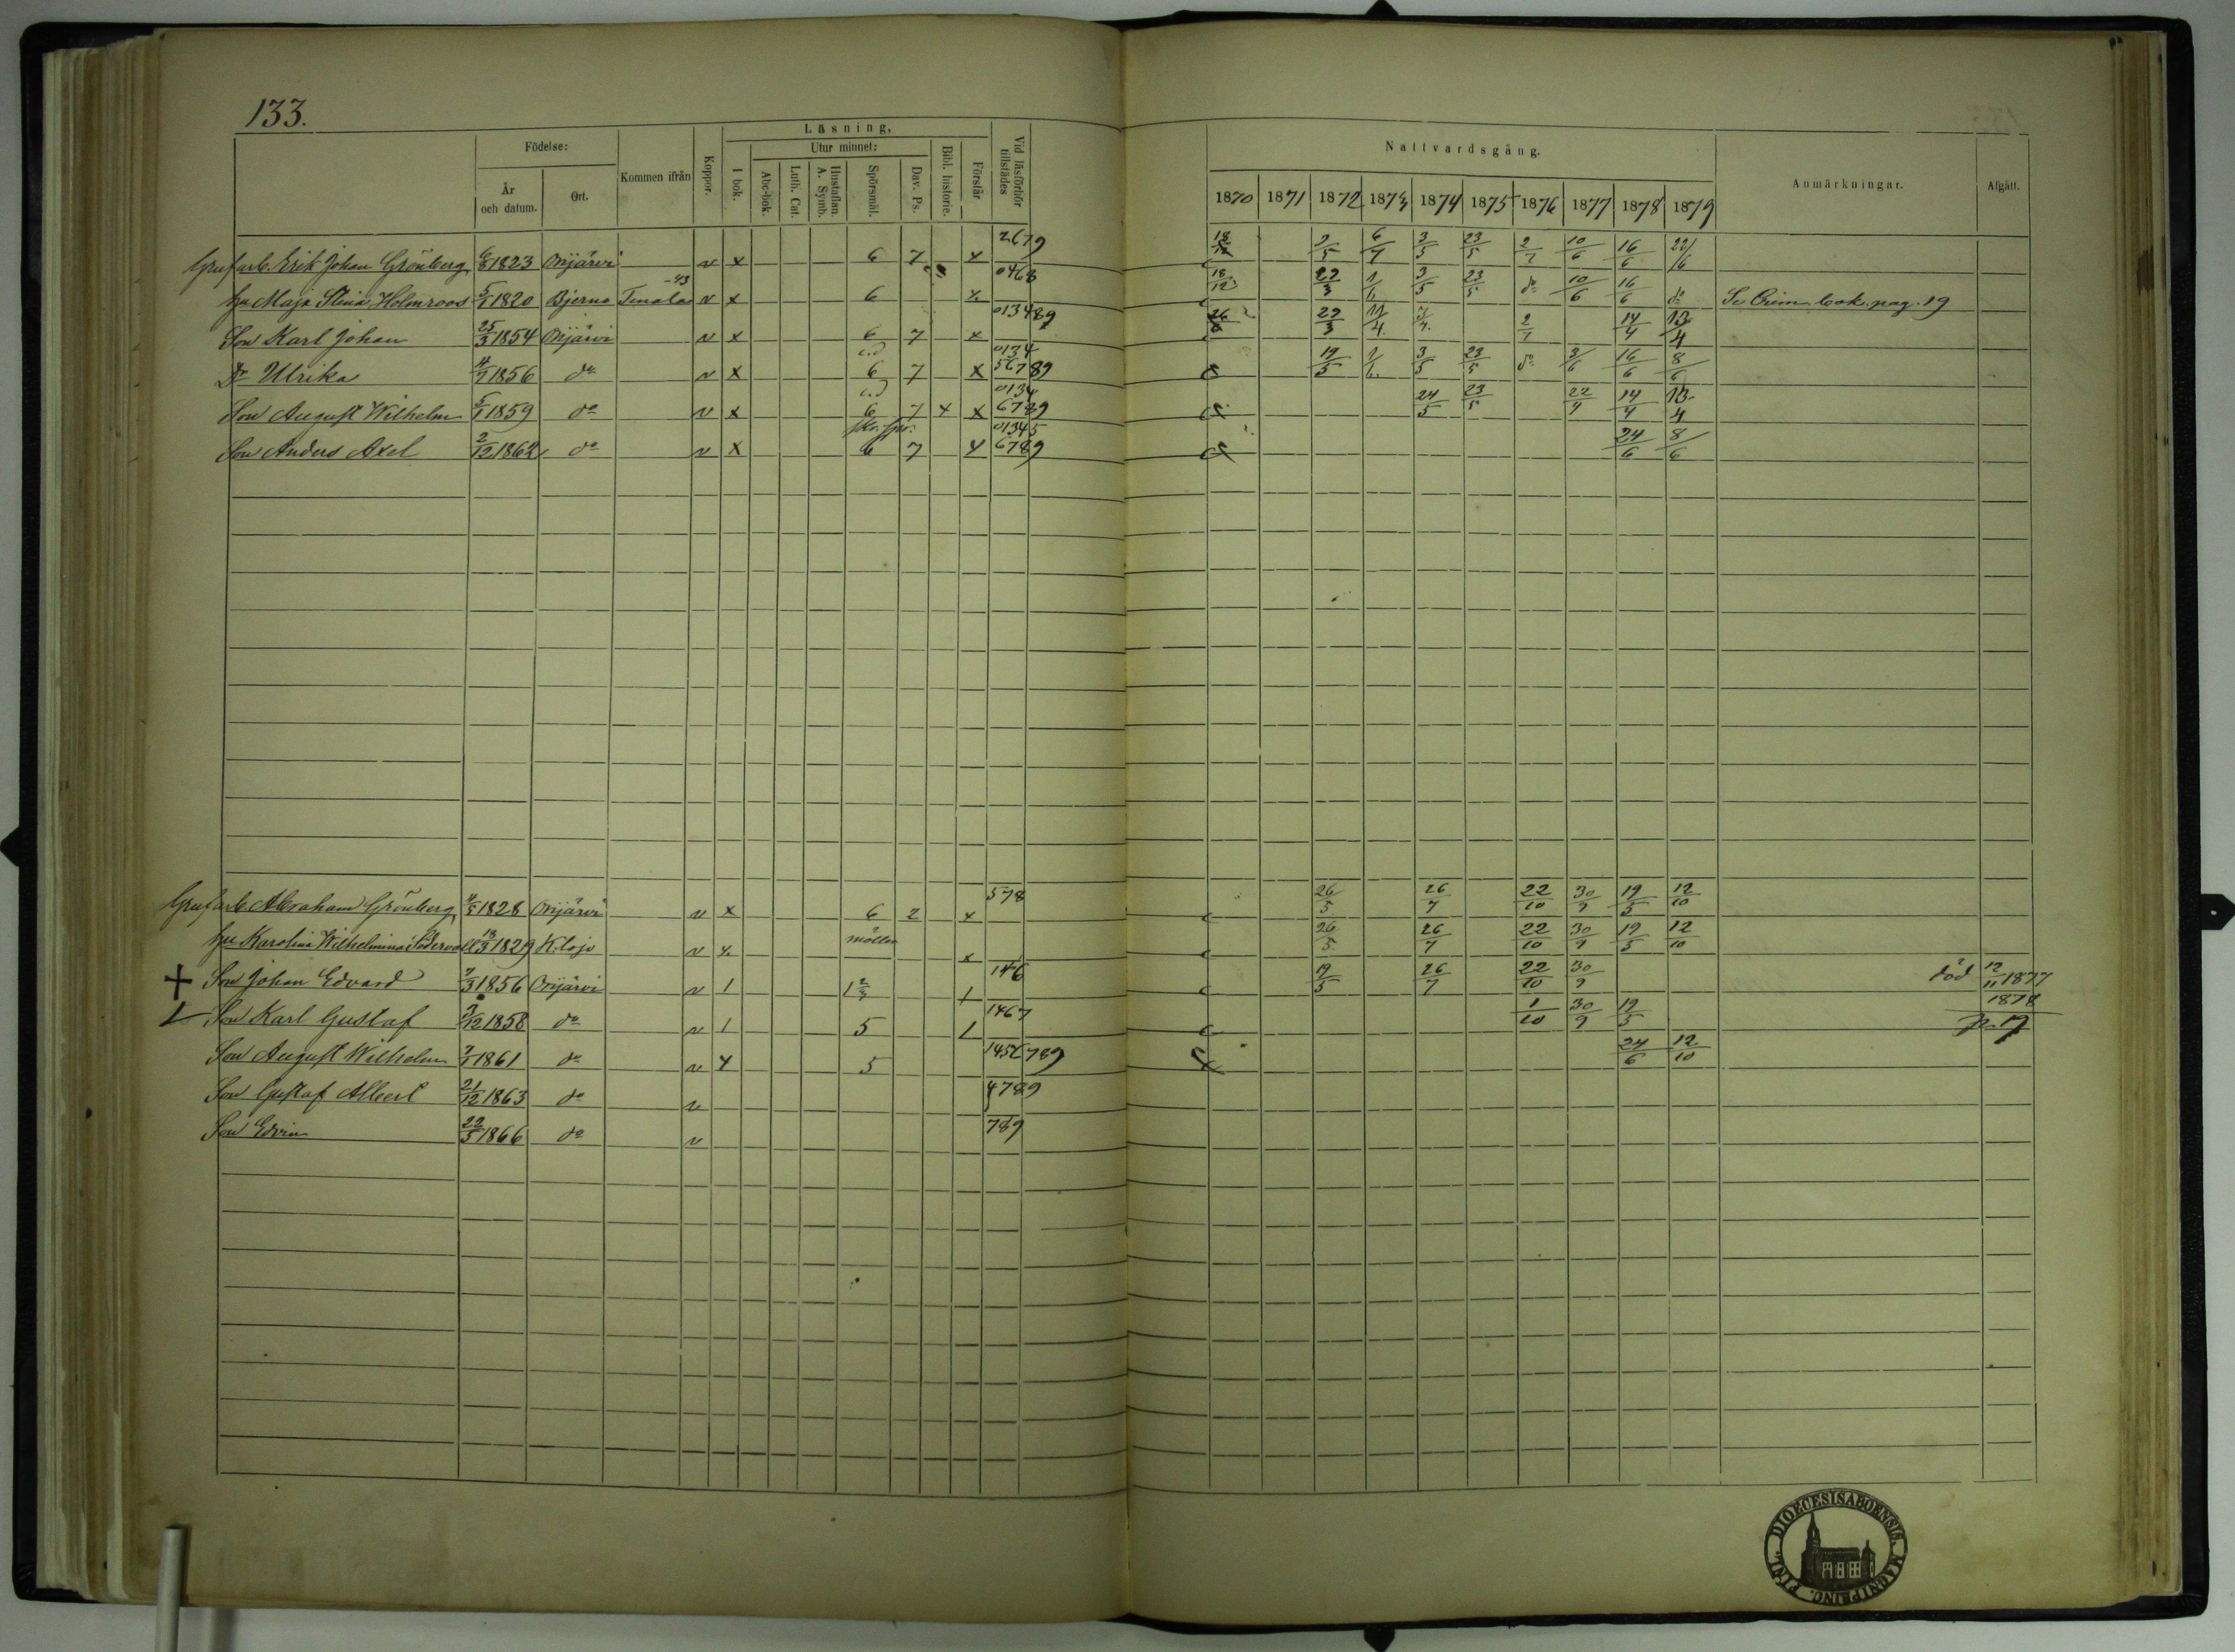 133.
Födelse:
År och datum.
Ort.
Kommen ifrån
Koppor.
Läsning,
I bok.
Utur minnet:
Abc-bok.
Luth. Cat.
Hustaflan. A. Symb.
Spörsmål.
Dav. Ps.
Bibl. historie.
Förstår
Vid läsförhör tillstädes
Nattvardsgång.
1870 1871 1872 1873 1874 1875 1876 1877 1878 1879
Anmärkningar.
Afgått.
Grufarb. Erik Johan Grönberg 6/8 1823 Orijärvi v x 6 7 x 2679 9/5 6/7 3/5 23/5 2/7 10/6 16/6 22/6
hu Maja Stina Holmroos 5/1 1820 Bjerno Tenala -43 v x 6 x 0468 18/12 22/3 1/6 3/5 23/5 do 10/6 16/6 do Se Crim. book. pag. 19
Son Karl Johan 25/3 1854 Orijärvi v x 6 7 x 013489 22/3 11/4 2/7 14/4 13/4
Dr Ulrika 4/7 1856 do v x c.d 6 7 x 0134 56789 19/5 1/6 3/5 23/5 do 3/6 16/6 8/6
Son August Wilhelm 5/1 1859 do v x c.d 6 7 x x 0134 6789 24/5 23/5 22/4 14/4 13/4
Son Anders Axel 2/12 1862 do v x 6 7 x 01345 6789 24/6 8/6
Grufarb. Abraham Grönberg 4/5 1828 Orijärvi v x 6 2 x 578 26/5 26/7 22/10 30/9 19/5 12/10
hu Karolina Wilhelmina Södervall 13/3 1829 K.lojo v x x 26/5 26/7 22/10 30/9 19/5 12/10
+ Son Johan Edvard 7/3 1856 Orijärvi v 1 1 2/3 1 146 19/5 26/7 22/10 30/9 död 12/11 1877
Son Karl Gustaf 3/12 1858 do v 1 5 1 1467 1/10 30/9 19/5 1878 p. 17
Son August Wilhelm 7/1 1861 do v x 5 1456789 24/6 12/10
Son Gustaf Albert 21/12 1863 do v 4789
Son Edvin 22/3 1866 do v 789
DIOECESIS ABOENSIS. MAGNI PRINC. FINL.